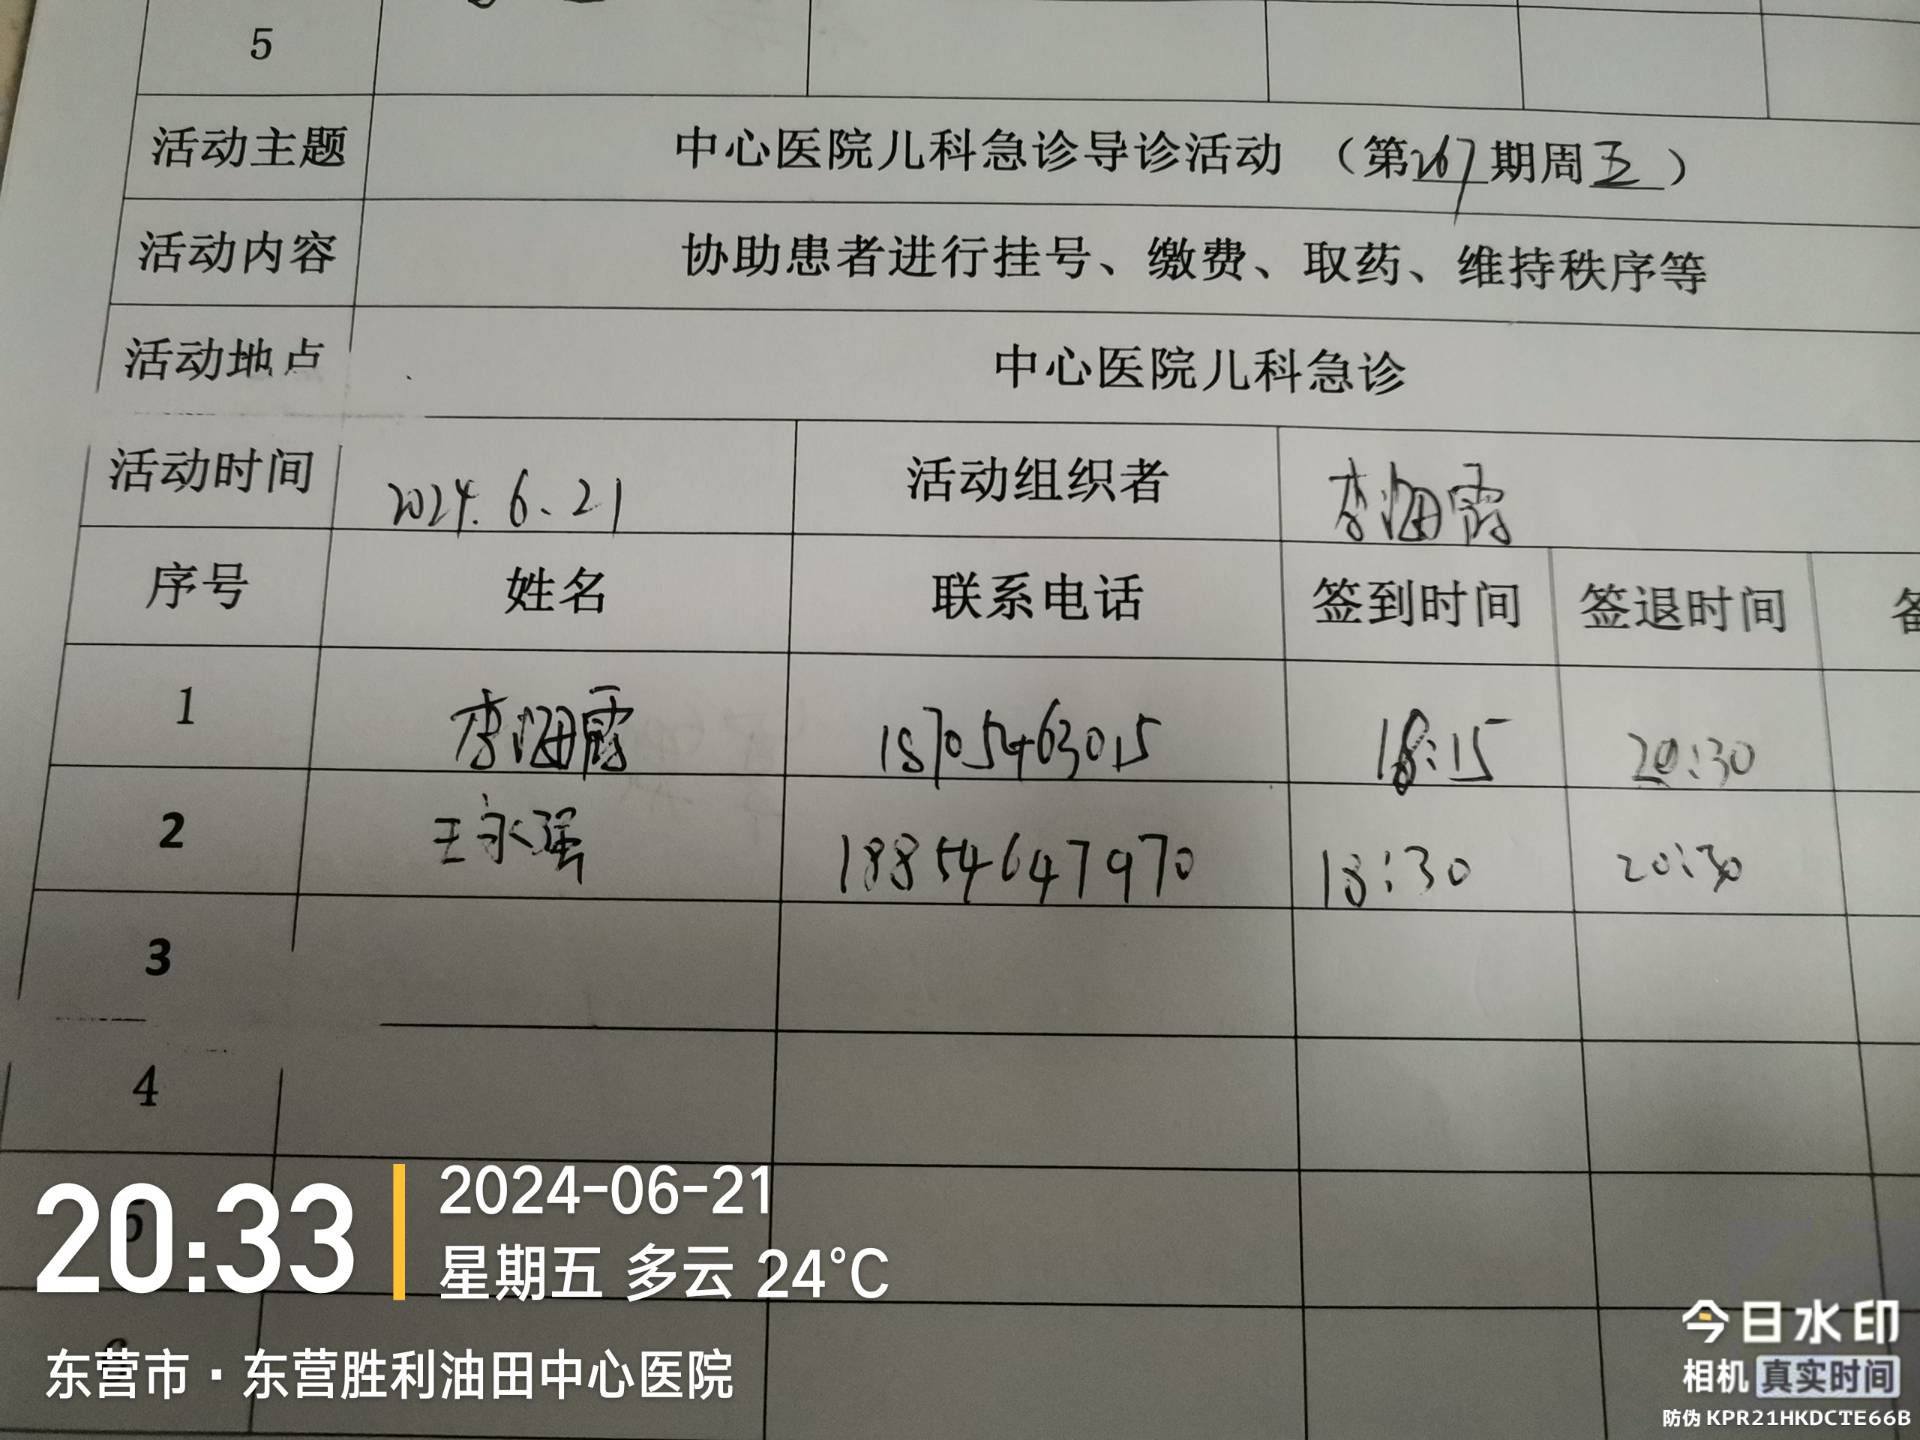 5
活动主题 中心医院儿科急诊导诊活动 （第267期周五）
活动内容 协助患者进行挂号、缴费、取药、维持秩序等
活动地点 中心医院儿科急诊
活动时间 2024.6.21 活动组织者 李海霞
序号 姓名 联系电话 签到时间 签退时间 备
1 李海霞 18705463015 18:15 20:30
2 王永强 18854647970 18:30 20:30
3
4
5
6
20:33
2024-06-21
星期五 多云 24°C
东营市·东营胜利油田中心医院
今日水印
相机 真实时间
防伪 KPR21HKDCTE66B